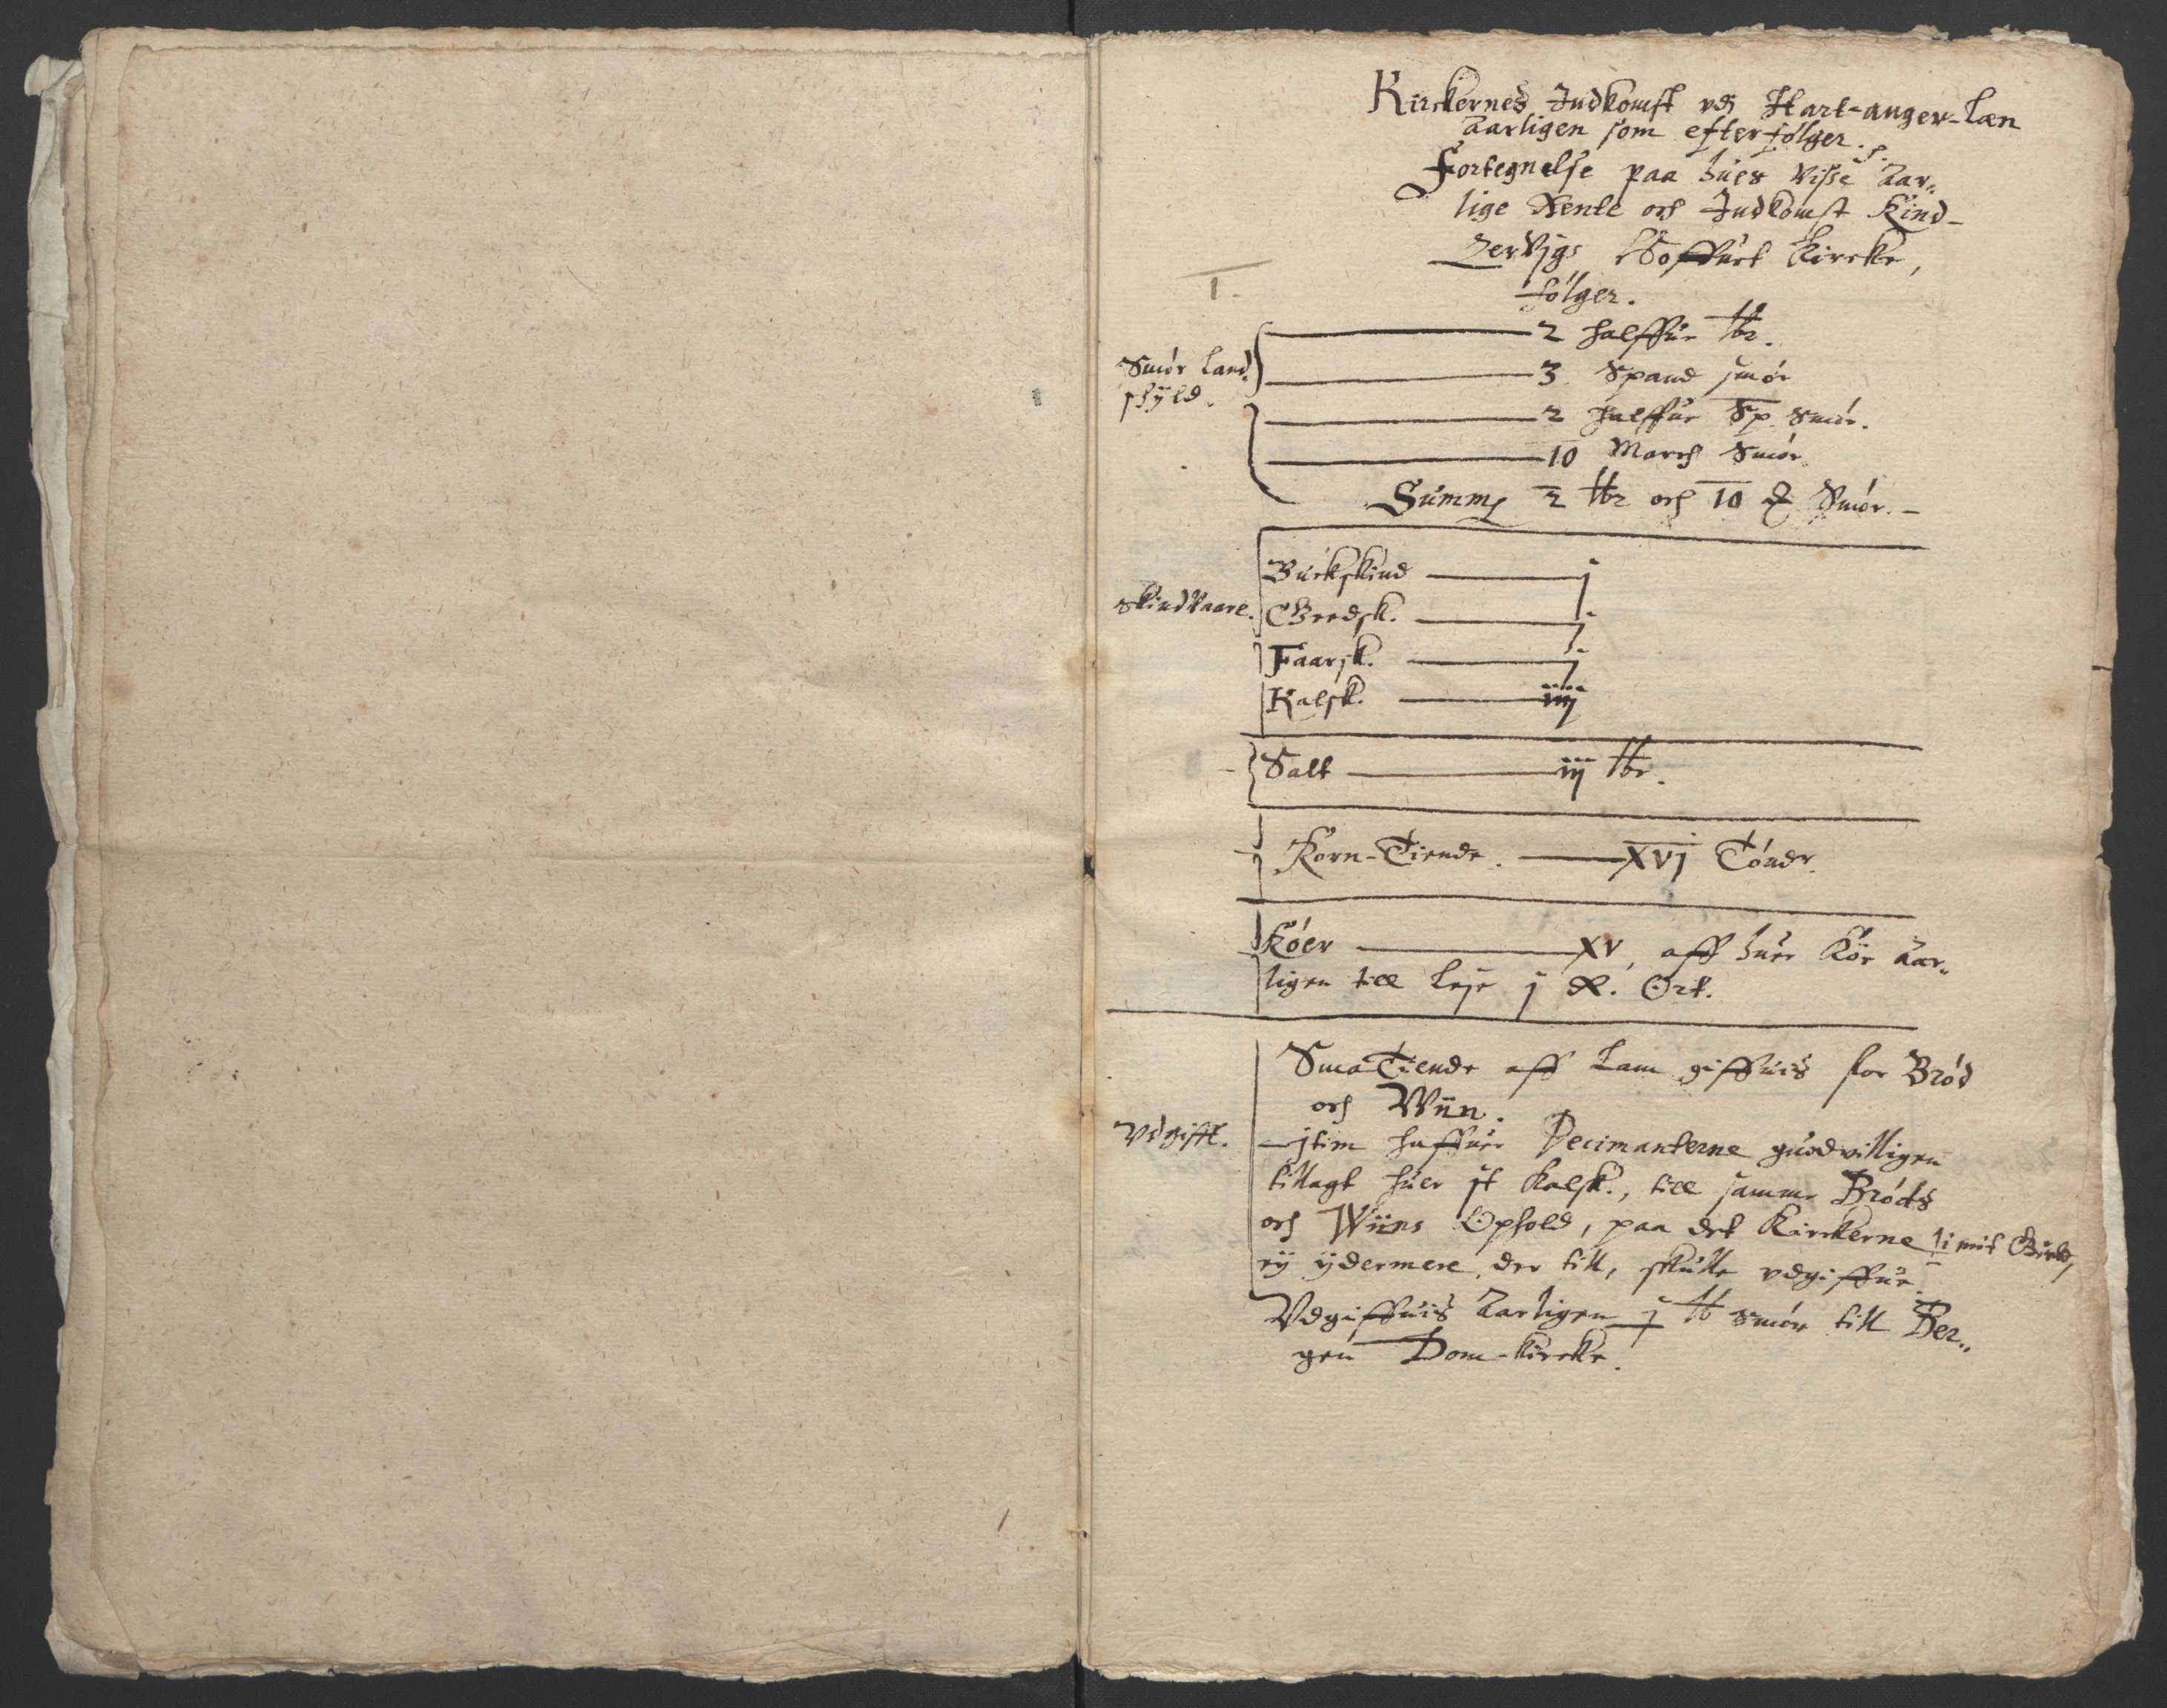 Kirckernes Indkomst vdj Hart-anger-Læn
Aarligen som efterfölger.
Fortegnelse paa hues visse Aar„
lige Rente och Indkomst Kind-
zerVigs Hoffuet Kircke,
fölger.
1.
2 halffue tbr.
Smör Land„
skÿld.
3. Spand smör
2 halffue Sp. Smör.
10 March Smör.
Summa 2 tbr och 10 Smör.
Skindvaare.
Buckskind j
Giedsk. j
Faarsk. j
Kalsk. iiij
Salt iij tbr.
Korn-Tiende. XVj Tönder.
Köer XV, aff huer Kör Aar„
ligen till Leje j R. Ort.
Sma Tiende aff Lam giffuis for Bröd
och Wiin.
Vdgifft.
jtem haffuer Decimanterne guodvilligen
tillagt huer jt Kalsk., till samme Bröds
och Wiins Ophold, paa det Kirckerne
eÿ ÿdermere, der till, skulle vdgiffue.
Vdgiffuis Aarligen j tb smör till Ber„
gen Dom-kircke.